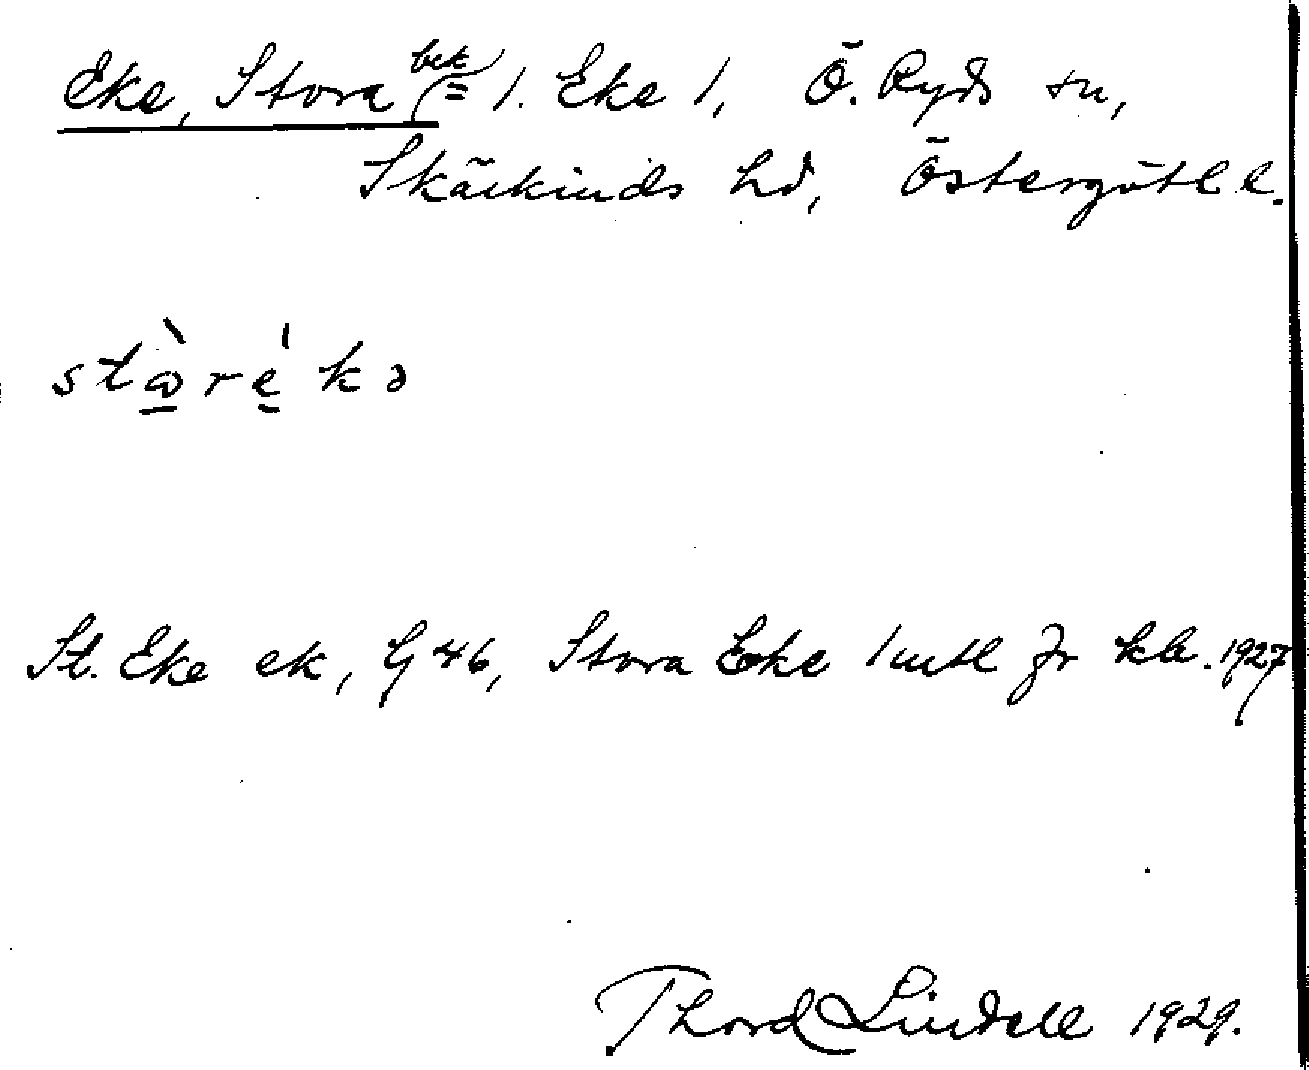 Eke, Stora (= bek) 1. Eke 1, Ö. Ryds sn,
Skärkinds hd, Östergötl. l.
stὼ̱re̱̍kə
St. Eke ek, G 46, Stora Eke 1 mtl jr kb. 1927
Thord Lindell 1929.